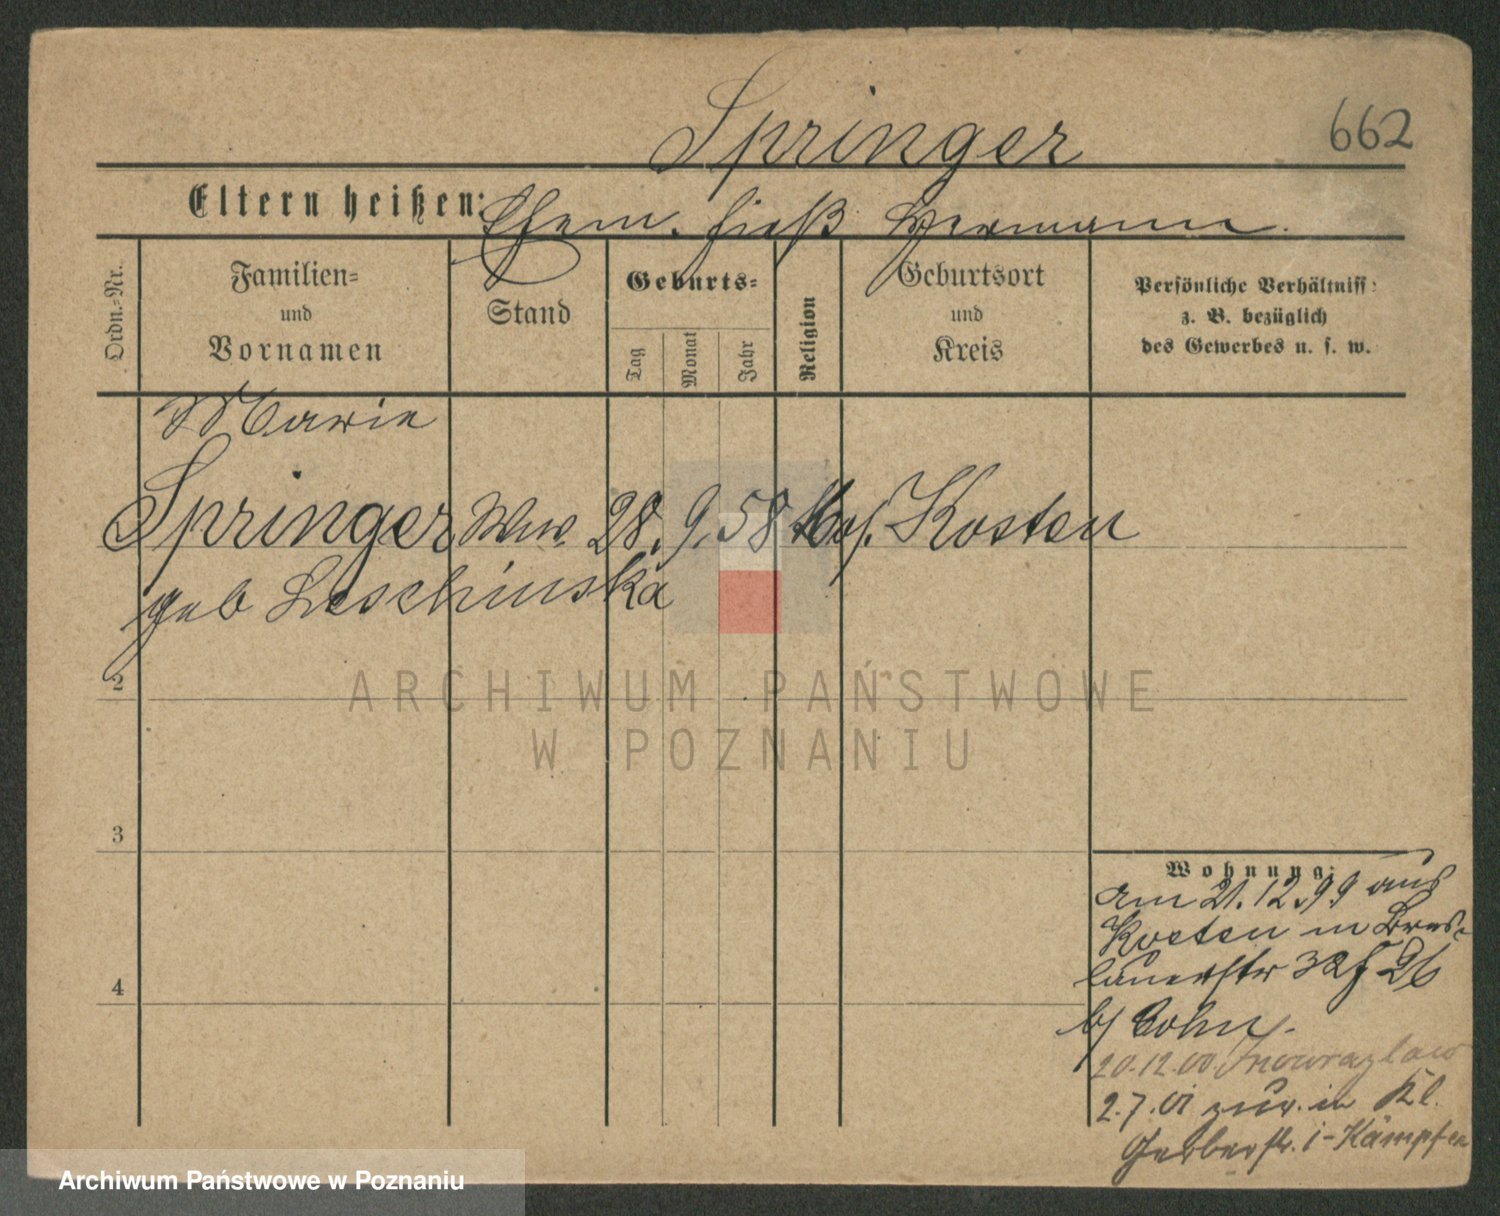 Springer
662
Eltern heißen: Ehem. hieß Hermann.
Ordn.-Nr.
Familien-
und
Vornamen
Stand
Geburts-
Tag
Monat
Jahr
Religion
Geburtsort
und
Kreis
Persönliche Verhältniss:
z. B. bezüglich
des Gewerbes u. s. w.
Marie
Springer Wwe. 28. 9. 58 Kosten
geb Leschinska
2
3
4
ARCHIWUM PAŃSTWOWE
W POZNANIU
Wohnung:
am 21.12.99 aus
Kosten in Bres-
lauerstr 32
b/ Cohn.
20.12.00. Inowrazlaw
2.7.01 zur. in Kl.
Gerberstr. i-Kämpfen
Archiwum Państwowe w Poznaniu